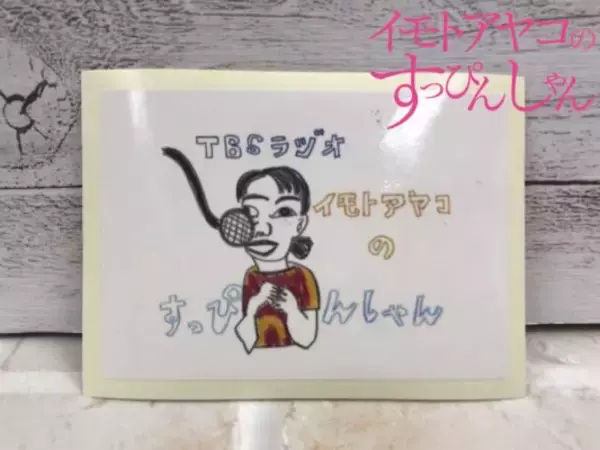 イモトアヤコの
すっぴんしゃん
TBSラジオ
イモトアヤコ
の
すっぴんしゃん